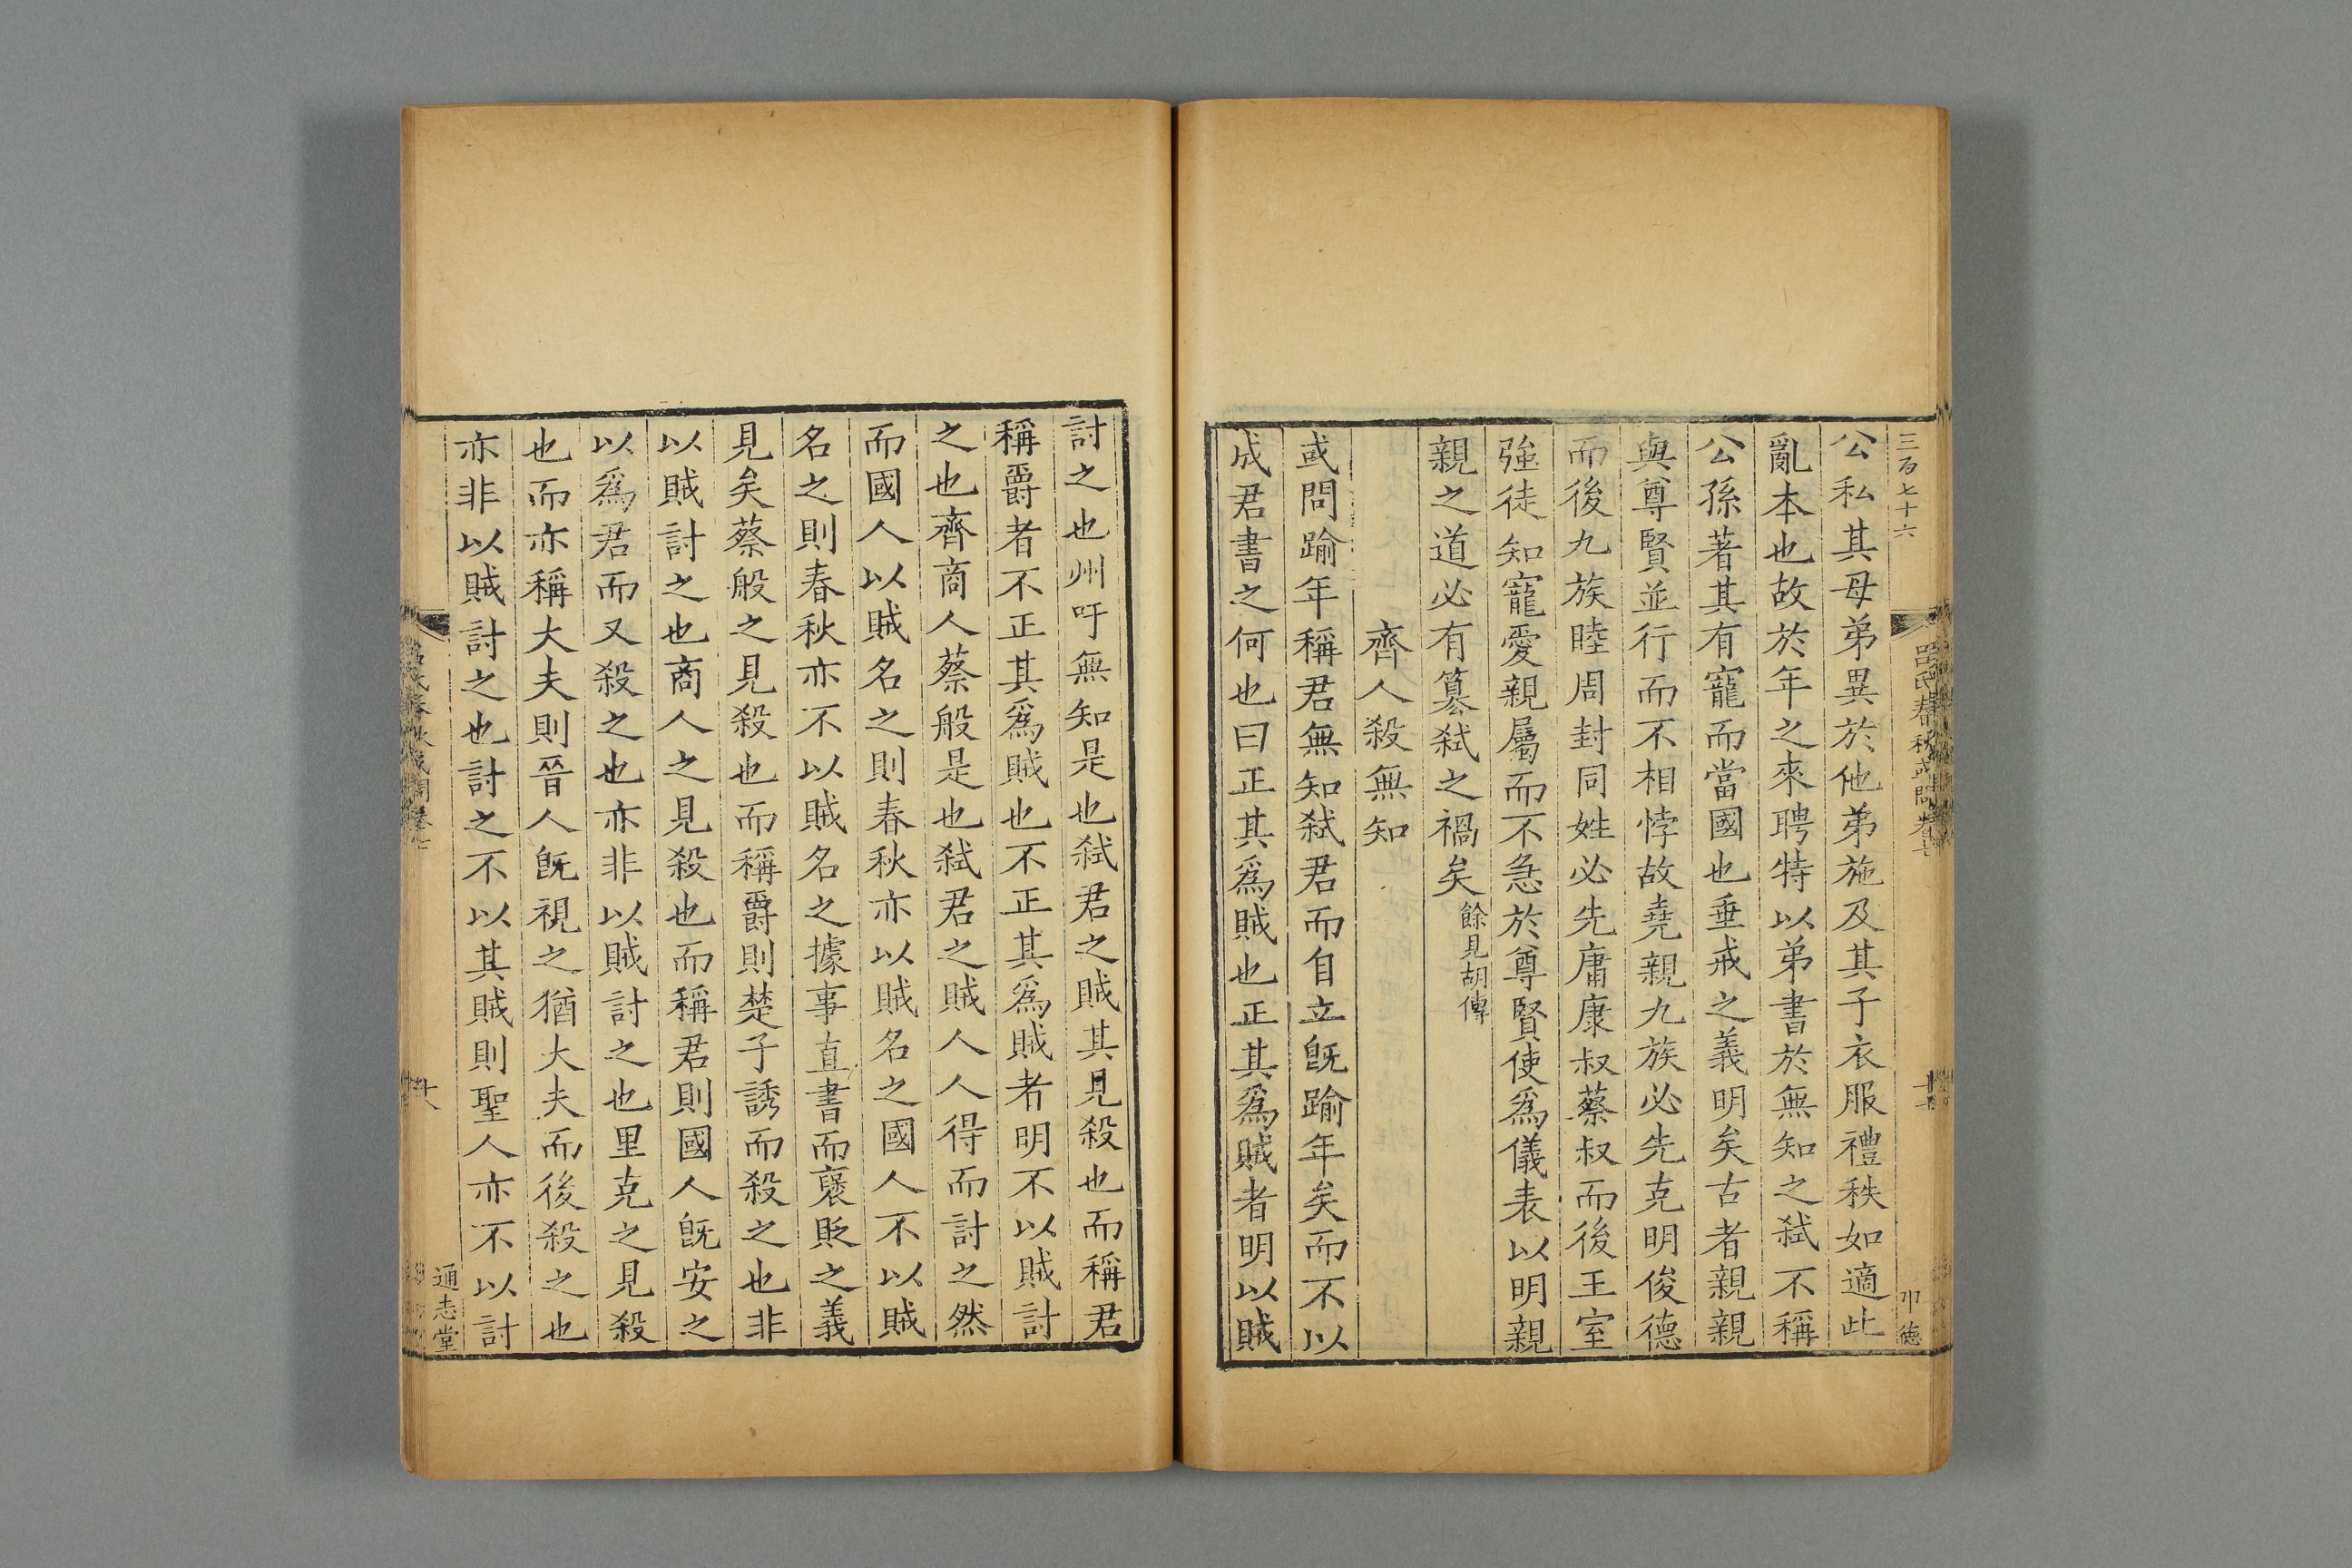 三百七十六
呂氏春秋或問卷七
十七
卬德
公私其母弟異於他弟施及其子衣服禮秩如適此
亂本也故於年之來聘特以弟書於無知之弑不稱
公孫著其有寵而當國也垂戒之義明矣古者親親
與尊賢並行而不相悖故堯親九族必先克明俊德
而後九族睦周封同姓必先庸康叔蔡叔而後王室
強徒知寵愛親屬而不急於尊賢使爲儀表以明親
親之道必有篡弑之禍矣餘見胡傳
齊人殺無知
或問踰年稱君無知弑君而自立旣踰年矣而不以
成君書之何也曰正其爲賊也正其爲賊者明以賊
討之也州吁無知是也弑君之賊其見殺也而稱君
稱爵者不正其爲賊也不正其爲賊者明不以賊討
之也齊商人蔡般是也弑君之賊人人得而討之然
而國人以賊名之則春秋亦以賊名之國人不以賊
名之則春秋亦不以賊名之據事直書而襃貶之義
見矣蔡般之見殺也而稱爵則楚子誘而殺之也非
以賊討之也商人之見殺也而稱君則國人旣安之
以爲君而又殺之也亦非以賊討之也里克之見殺
也而亦稱大夫則晉人旣視之猶大夫而後殺之也
亦非以賊討之也討之不以其賊則聖人亦不以討
呂氏春秋或問卷七
十八
通志堂